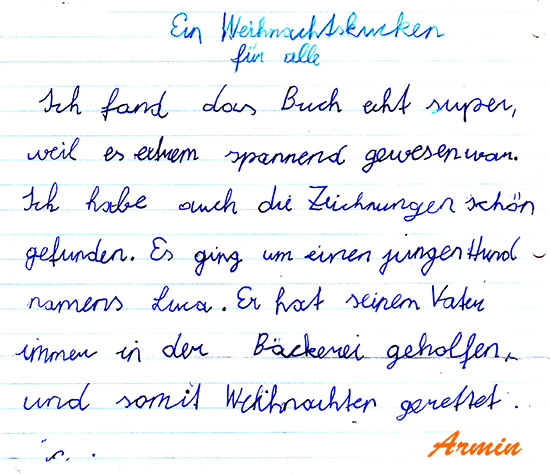 Ein Weihnachtskucken
für alle
Ich fand das Buch echt super,
weil es extrem spannend gewesen war.
Ich habe auch die Zeichnungen schön
gefunden. Es ging um einen jungen Hund
namens Luca. Er hat seinem Vater
immer in der Bäckerei geholfen,
und somit Weihnachten gerettet.
Armin